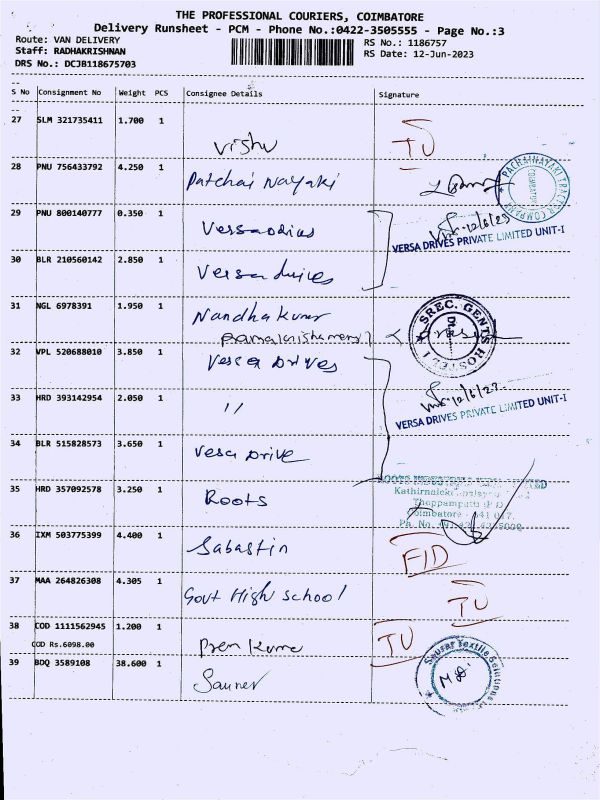 THE PROFESSIONAL COURIERS, COIMBATORE
Delivery Runsheet - PCM - Phone No.:0422-3505555 - Page No.:3
Route: VAN DELIVERY
RS No.: 1186757
Staff: RADHAKRISHNAN
RS Date: 12-Jun-2023
DRS No.: DCJB118675703
S No Consignment No Weight PCS Consignee Details Signature
27 SLM 321735411 1.700 1 Vishu TU
28 PNU 756433792 4.250 1 Patchai Nayaki
PACHAINAYAKI TRACTOR COMPANY
COIMBATORE
29 PNU 800140777 0.350 1 Versa drives 12/6/23
VERSA DRIVES PRIVATE LIMITED UNIT-I
30 BLR 210560142 2.850 1 Versa drives
31 NGL 6978391 1.950 1 Nandha kumar
SREC. GENTS HOSTEL 1
32 VPL 520688010 3.850 1 Versa Drives
33 HRD 393142954 2.050 1 11 12/6/23
VERSA DRIVES PRIVATE LIMITED UNIT-I
34 BLR 515828573 3.650 1 Vesa Drive
35 HRD 357092578 3.250 1 Roots
Thoppampatti
Coimbatore
36 IXM 503775399 4.400 1 Sabastin FID
37 MAA 264826308 4.305 1 Govt High School TU
38 COD 1111562945 1.200 1 Prem Kumar TU
COD Rs.6098.00
39 BDQ 3589108 38.600 1 Saurer
Saurer Textile Solutions